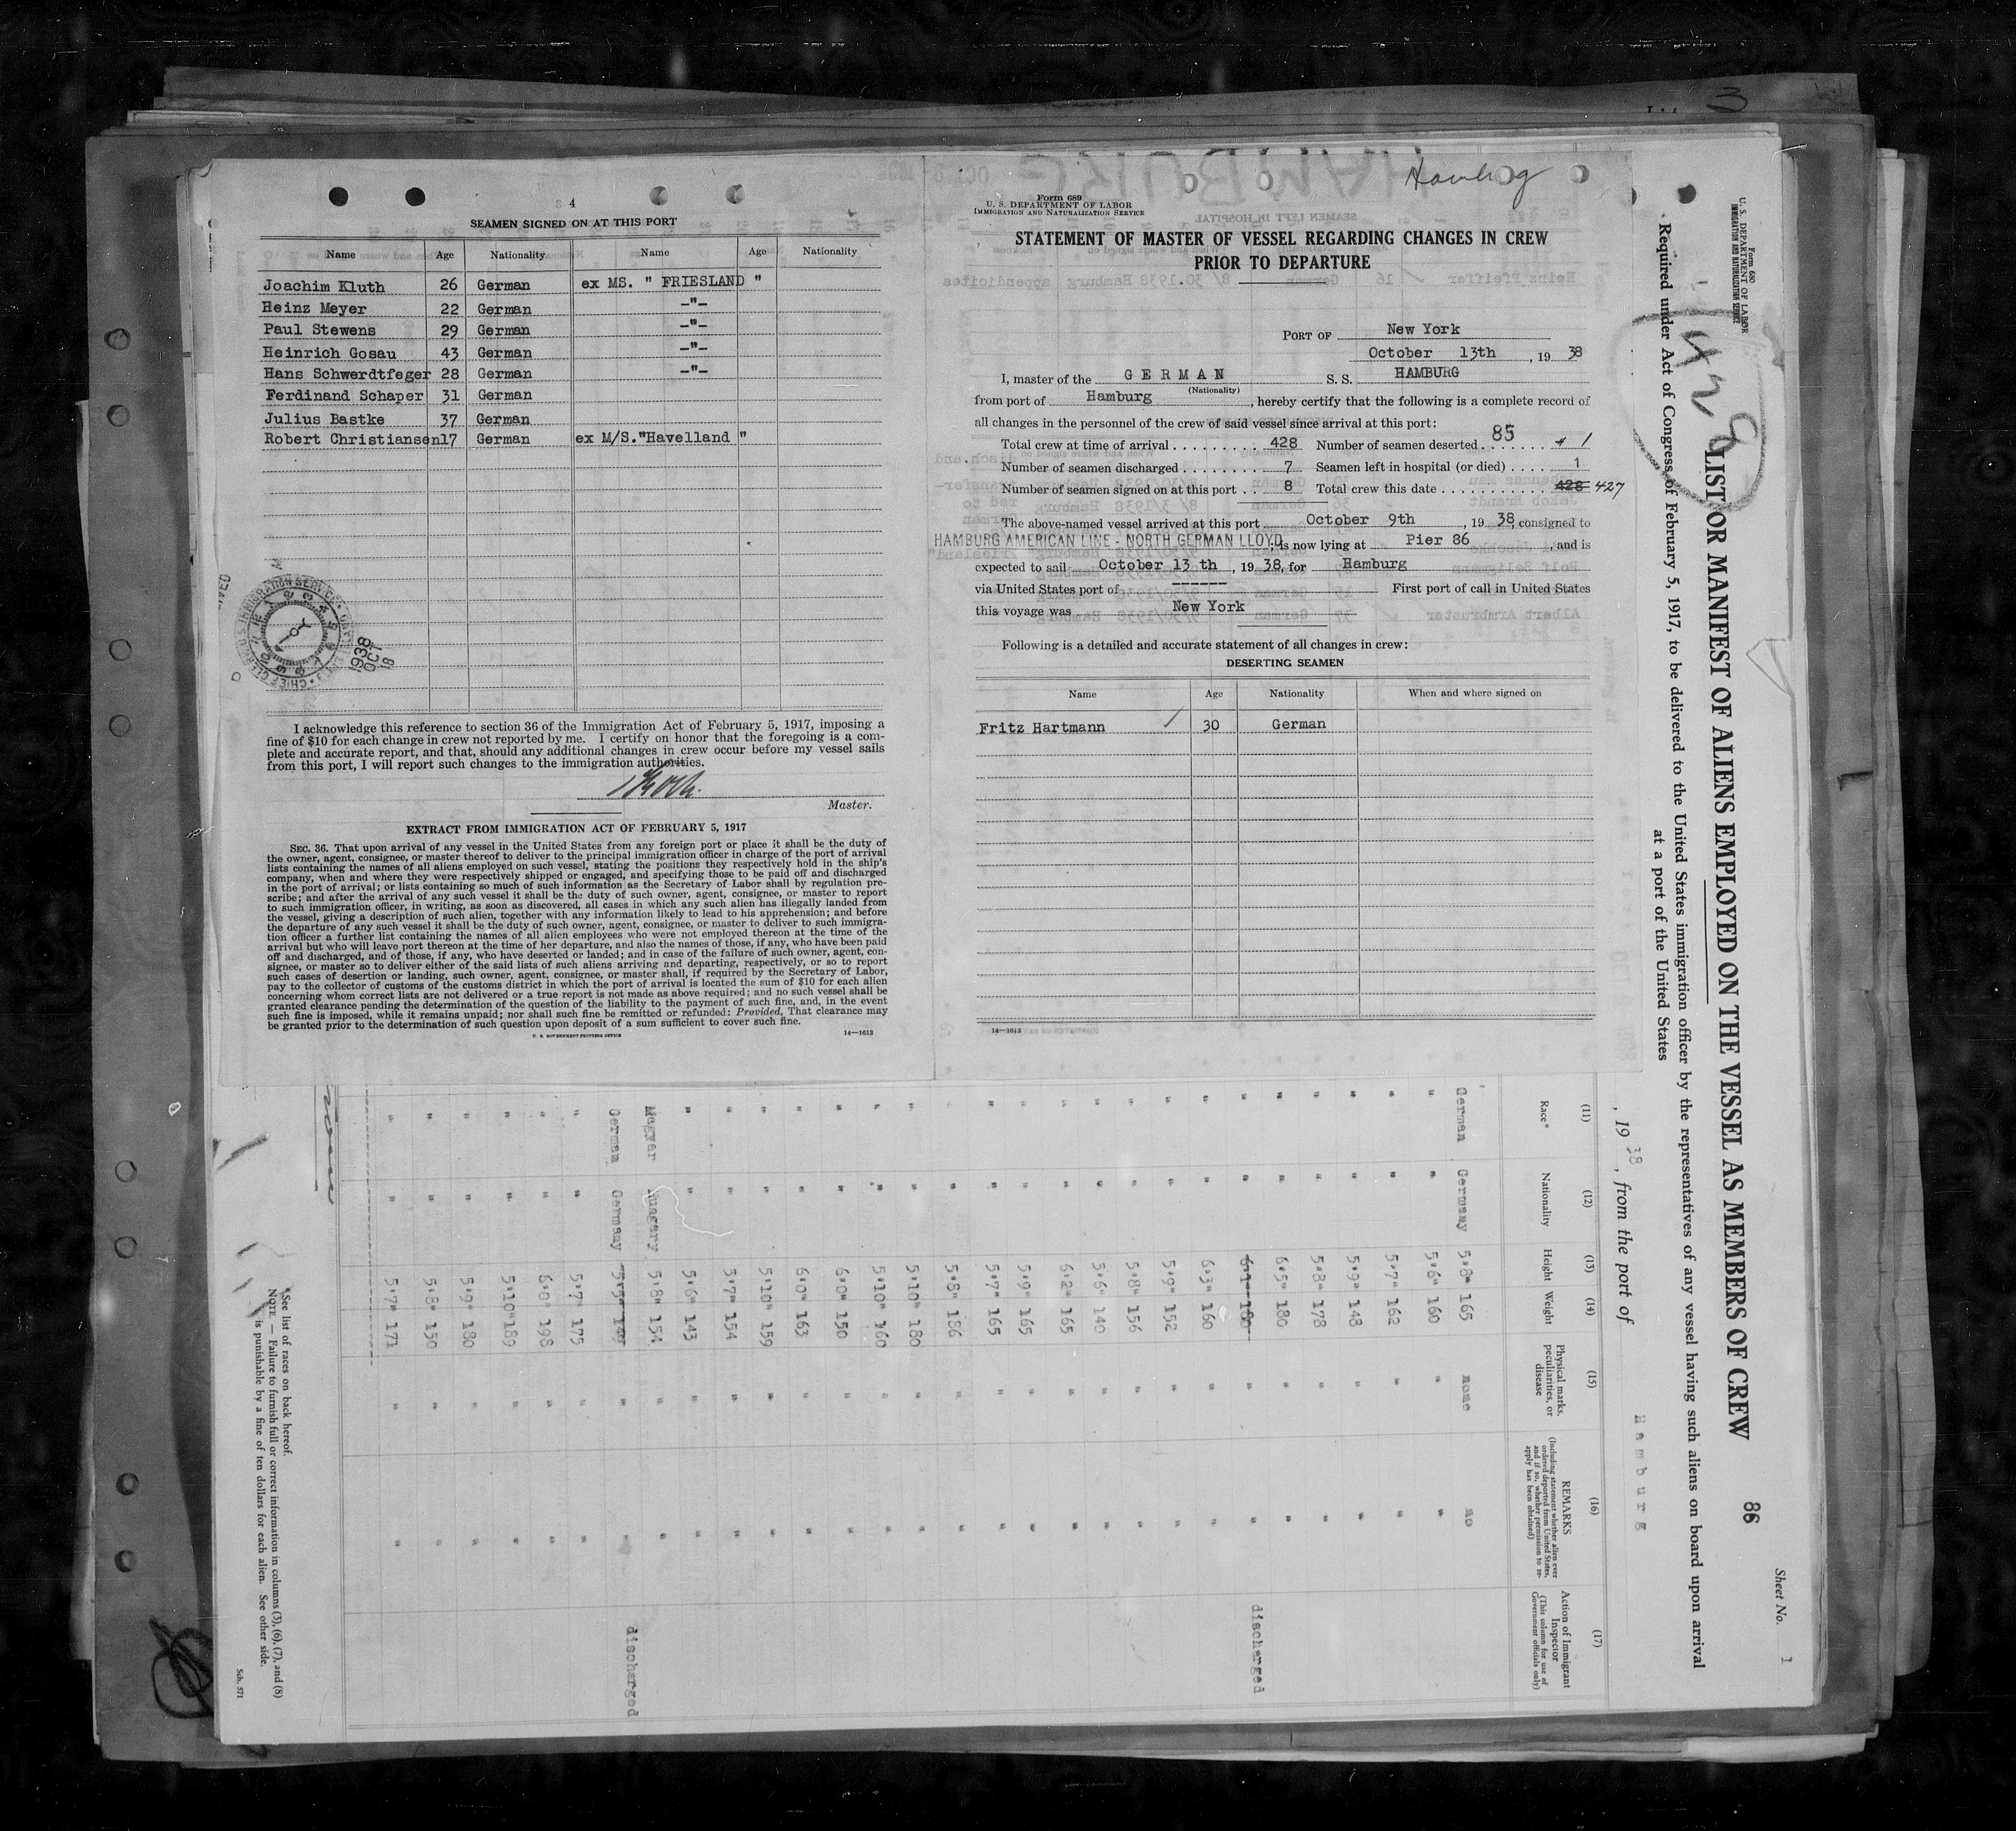 4
SEAMEN SIGNED ON AT THIS PORT
Name Age Nationality Name Age Nationality
Joachim Kluth 26 German ex MS. " FRIESLAND "
Heinz Meyer 22 German -"-
Paul Stewens 29 German -"-
Heinrich Gosau 43 German -"-
Hans Schwerdtfeger 28 German -"-
Ferdinand Schaper 31 German
Julius Bastke 37 German
Robert Christiansen 17 German ex M/S."Havelland "
1938
OCT
18
I acknowledge this reference to section 36 of the Immigration Act of February 5, 1917, imposing a
fine of $10 for each change in crew not reported by me. I certify on honor that the foregoing is a com-
plete and accurate report, and that, should any additional changes in crew occur before my vessel sails
from this port, I will report such changes to the immigration authorities.
Master.
EXTRACT FROM IMMIGRATION ACT OF FEBRUARY 5, 1917
SEC. 36. That upon arrival of any vessel in the United States from any foreign port or place it shall be the duty of
the owner, agent, consignee, or master thereof to deliver to the principal immigration officer in charge of the port of arrival
lists containing the names of all aliens employed on such vessel, stating the positions they respectively hold in the ship's
company, when and where they were respectively shipped or engaged, and specifying those to be paid off and discharged
in the port of arrival; or lists containing so much of such information as the Secretary of Labor shall by regulation pre-
scribe; and after the arrival of any such vessel it shall be the duty of such owner, agent, consignee, or master to report
to such immigration officer, in writing, as soon as discovered, all cases in which any such alien has illegally landed from
the vessel, giving a description of such alien, together with any information likely to lead to his apprehension; and before
the departure of any such vessel it shall be the duty of such owner, agent, consignee, or master to deliver to such immigra-
tion officer a further list containing the names of all alien employees who were not employed thereon at the time of the
arrival but who will leave port thereon at the time of her departure, and also the names of those, if any, who have been paid
off and discharged, and of those, if any, who have deserted or landed; and in case of the failure of such owner, agent, con-
signee, or master so to deliver either of the said lists of such aliens arriving and departing, respectively, or so to report
such cases of desertion or landing, such owner, agent, consignee, or master shall, if required by the Secretary of Labor,
pay to the collector of customs of the customs district in which the port of arrival is located the sum of $10 for each alien
concerning whom correct lists are not delivered or a true report is not made as above required; and no such vessel shall be
granted clearance pending the determination of the question of the liability to the payment of such fine, and, in the event
such fine is imposed, while it remains unpaid; nor shall such fine be remitted or refunded: Provided, That clearance may
be granted prior to the determination of such question upon deposit of a sum sufficient to cover such fine.
U. S. GOVERNMENT PRINTING OFFICE 14—1613
Hamburg
Form 689
U. S. DEPARTMENT OF LABOR
IMMIGRATION AND NATURALIZATION SERVICE
STATEMENT OF MASTER OF VESSEL REGARDING CHANGES IN CREW
PRIOR TO DEPARTURE
PORT OF New York
October 13th , 19 38
I, master of the GERMAN S. S. HAMBURG
(Nationality)
from port of Hamburg , hereby certify that the following is a complete record of
all changes in the personnel of the crew of said vessel since arrival at this port:
85
Total crew at time of arrival 428 Number of seamen deserted 1
Number of seamen discharged 7 Seamen left in hospital (or died) 1
Number of seamen signed on at this port 8 Total crew this date 428 427
The above-named vessel arrived at this port October 9th , 19 38, consigned to
HAMBURG AMERICAN LINE - NORTH GERMAN LLOYD, is now lying at Pier 86 , and is
expected to sail October 13 th , 19 38, for Hamburg
via United States port of ------ First port of call in United States
this voyage was New York
Following is a detailed and accurate statement of all changes in crew:
DESERTING SEAMEN
Name Age Nationality When and where signed on
Fritz Hartmann 30 German
14—1613
Form 680
U. S. DEPARTMENT OF LABOR
IMMIGRATION AND NATURALIZATION SERVICE
428
LIST OR MANIFEST OF ALIENS EMPLOYED ON THE VESSEL AS MEMBERS OF CREW
86
Sheet No. 1
Required under Act of Congress of February 5, 1917, to be delivered to the United States immigration officer by the representatives of any vessel having such aliens on board upon arrival
at a port of the United States
, 19 38 , from the port of Hamburg
(11) (12) (13) (14) (15) (16) (17)
Race* Nationality Height Weight Physical marks, peculiarities, or disease REMARKS (Including statement whether alien ever ordered deported from United States, and if so, whether permission to re-apply has been obtained) Action of Immigrant Inspector (This column for use of Government officials only)
German Germany 5'8" 165 none no
" " 5'6" 160 " "
" " 5'7" 162 " "
" " 5'9" 148 " "
" " 5'8" 178 " "
" " 6'5" 180 " "
" " 6'1" 180 " " discharged
" " 6'3" 160 " "
" " 5'9" 152 " "
" " 5'8" 156 " "
" " 5'6" 140 " "
" " 6'2" 165 " "
" " 5'9" 165 " "
" " 5'7" 165 " "
" " 5'8" 186 " "
" " 5'10" 180 " "
" " 5'10" 160 " "
" " 6'0" 150 " "
" " 6'0" 163 " "
" " 5'10" 159 " "
" " 5'7" 154 " "
" " 5'6" 143 " "
Magyar Hungary 5'8" 154 " "
German Germany 5'5" 149 " " discharged
" " 5'7" 175 " "
" " 6'0" 198 " "
" " 5'10" 189 " "
" " 5'9" 180 " "
" " 5'8" 150 " "
" " 5'7" 171 " "
*See list of races on back hereof.
NOTE. — Failure to furnish full or correct information in columns (3), (6), (7), and (8)
is punishable by a fine of ten dollars for each alien. See other side.
Sch. 571